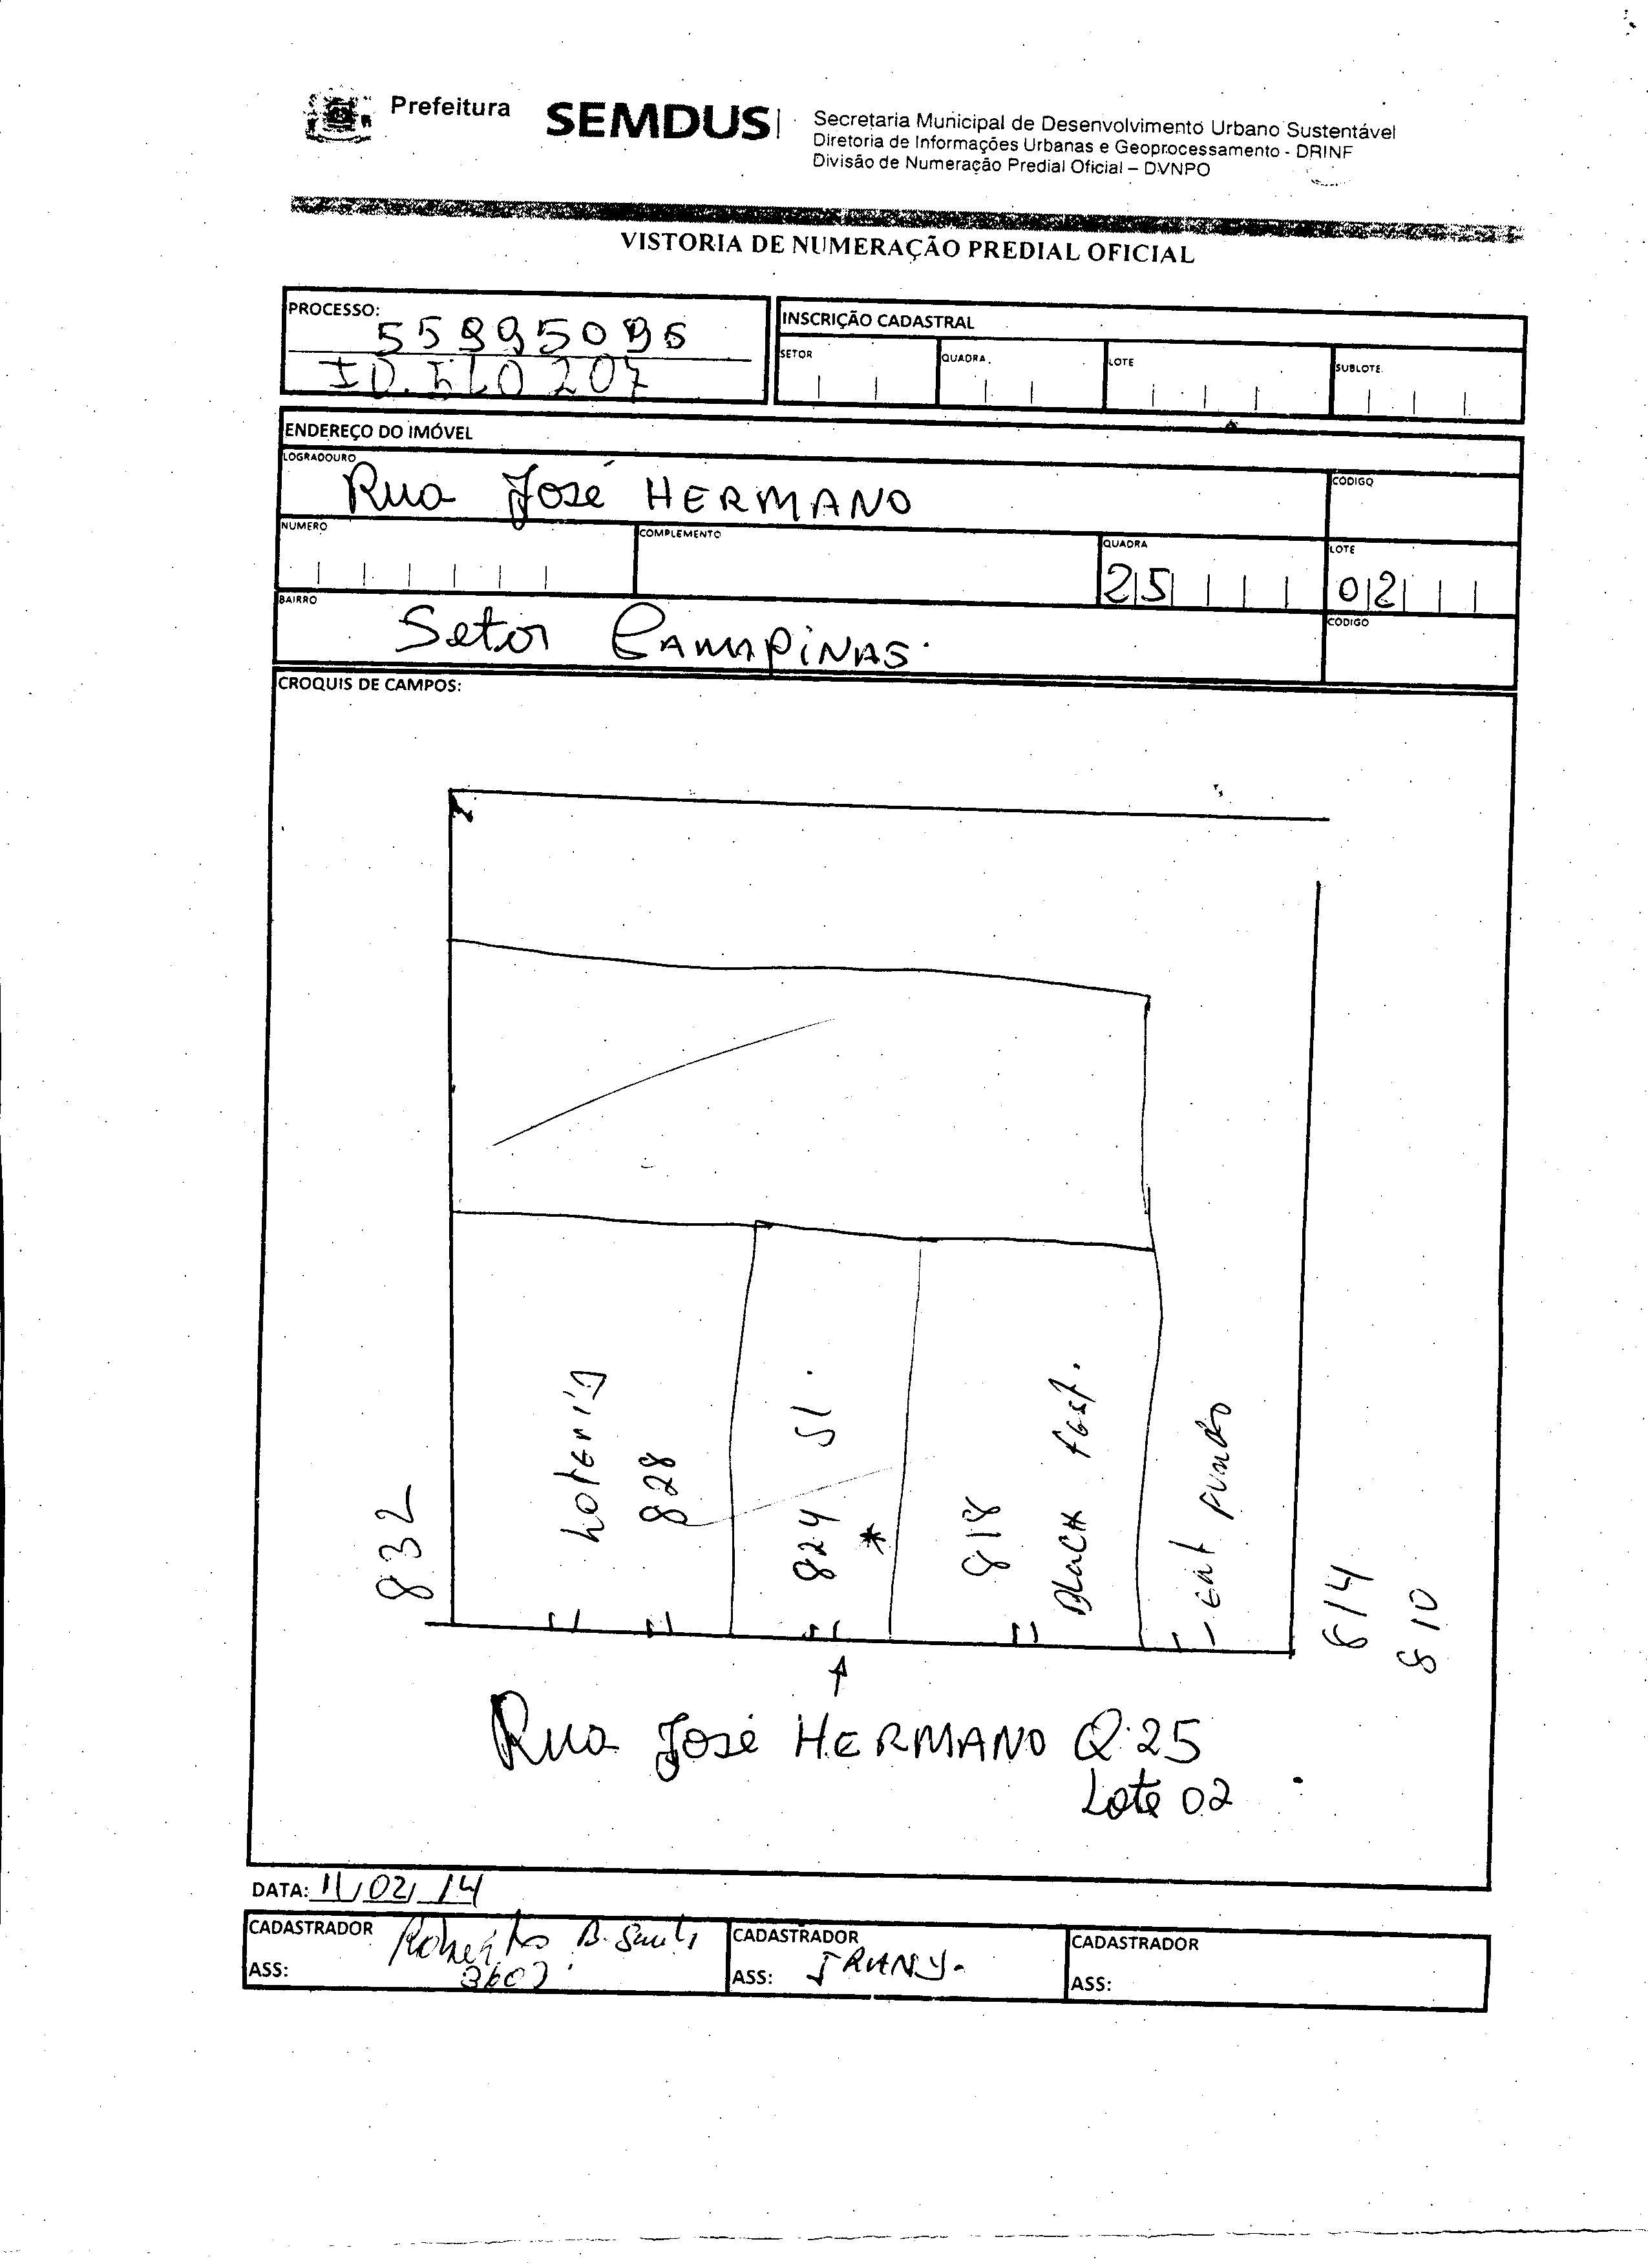 Prefeitura
SEMDUS
Secretaria Municipal de Desenvolvimento Urbano Sustentável
Diretoria de Informações Urbanas e Geoprocessamento - DRINF
Divisão de Numeração Predial Oficial – DVNPO
VISTORIA DE NUMERAÇÃO PREDIAL OFICIAL
PROCESSO:
INSCRIÇÃO CADASTRAL
SETOR QUADRA LOTE SUBLOTE
ENDEREÇO DO IMÓVEL
LOGRADOURO
Rua José HERMANO
CÓDIGO
NUMERO COMPLEMENTO QUADRA LOTE
25 02
BAIRRO
Setor CAMPINAS
CÓDIGO
CROQUIS DE CAMPOS:
832
Loteria
828
824 Sl.
*
818
Black fest.
Ent fundo
814
810
Rua José HERMANO Q.25
Lote 02
DATA: 11/02/14
CADASTRADOR Roberto B.
ASS:
CADASTRADOR
ASS:
CADASTRADOR
ASS: